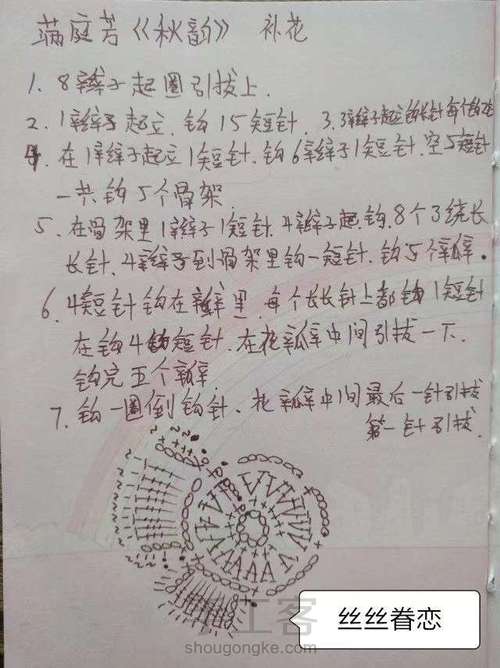 满庭芳《秋韵》 补花
1. 8辫子起圈引拔上.
2. 1辫子起立. 钩15短针. 3. 3辫子起立钩长针每个加
4. 在1辫子起立1短针. 钩6辫子1短针. 空5短针
一共钩5个骨架.
5. 在骨架里1辫子1短针. 4辫子起. 钩. 8个3绕长
长针. 4辫子到骨架里钩一短针. 钩5个瓣.
6. 4短针钩在瓣里. 每个长长针上都钩1短针
在钩4短针. 在花瓣中间引拔一下.
钩完五个瓣.
7. 钩一圈倒钩针. 花瓣中间最后一针引拔
第一针引拔.
丝丝眷恋
手工客
shougongke.com